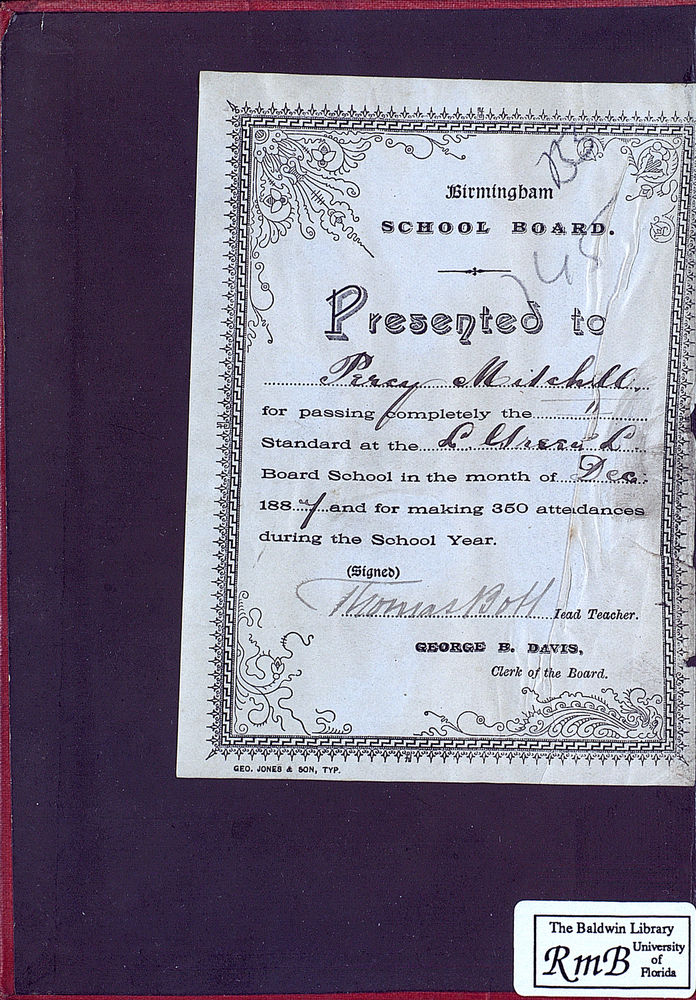 Birmingham
SCHOOL BOARD.
Presented to
Percy Mitchell
for passing completely the "
Standard at the
Board School in the month of Dec.
188 7 and for making 350 attendances
during the School Year.
(Signed)
Thomas Bott Head Teacher.
GEORGE B. DAVIS,
Clerk of the Board.
GEO. JONES & SON, TYP.
The Baldwin Library
RmB University
of
Florida